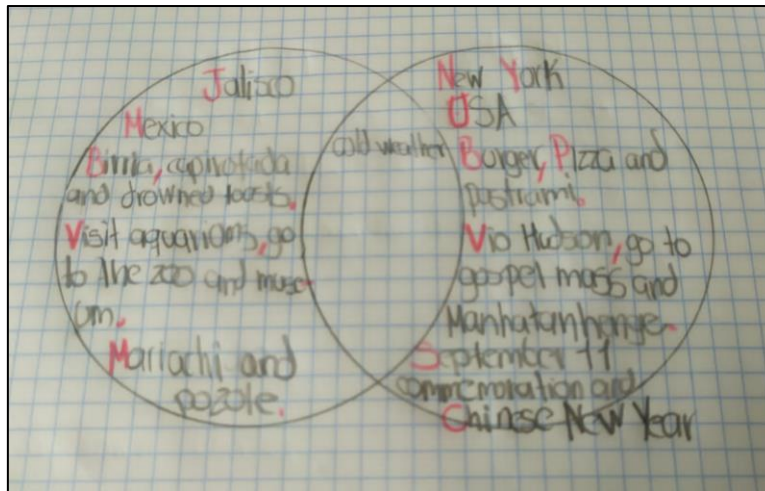 Jalisco
Mexico
Birria, capirotada
and drowned toasts.
Visit aquariums, go
to the zoo and muse
um.
Mariachi and
pozole.
cold weather
New York
USA
Burger, Pizza and
pastrami.
Vio Hudson, go to
gospel mass and
Manhatanhenge.
September 11
commemoration and
Chinese New Year